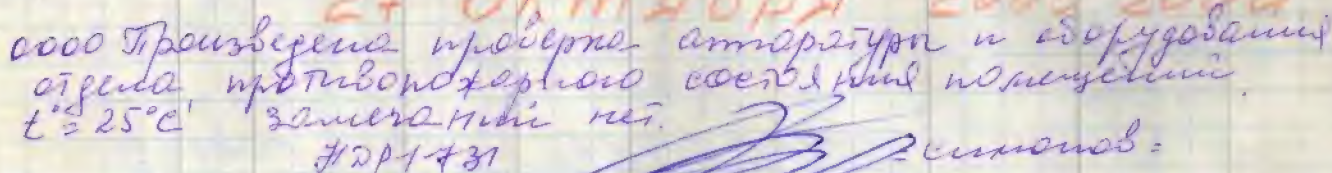 27 октября 2009 года
0000 Произведена проверка аппаратуры и оборудования
отдела, противопожарного состояния помещений.
t°=25°C замечаний нет.
=симонов=